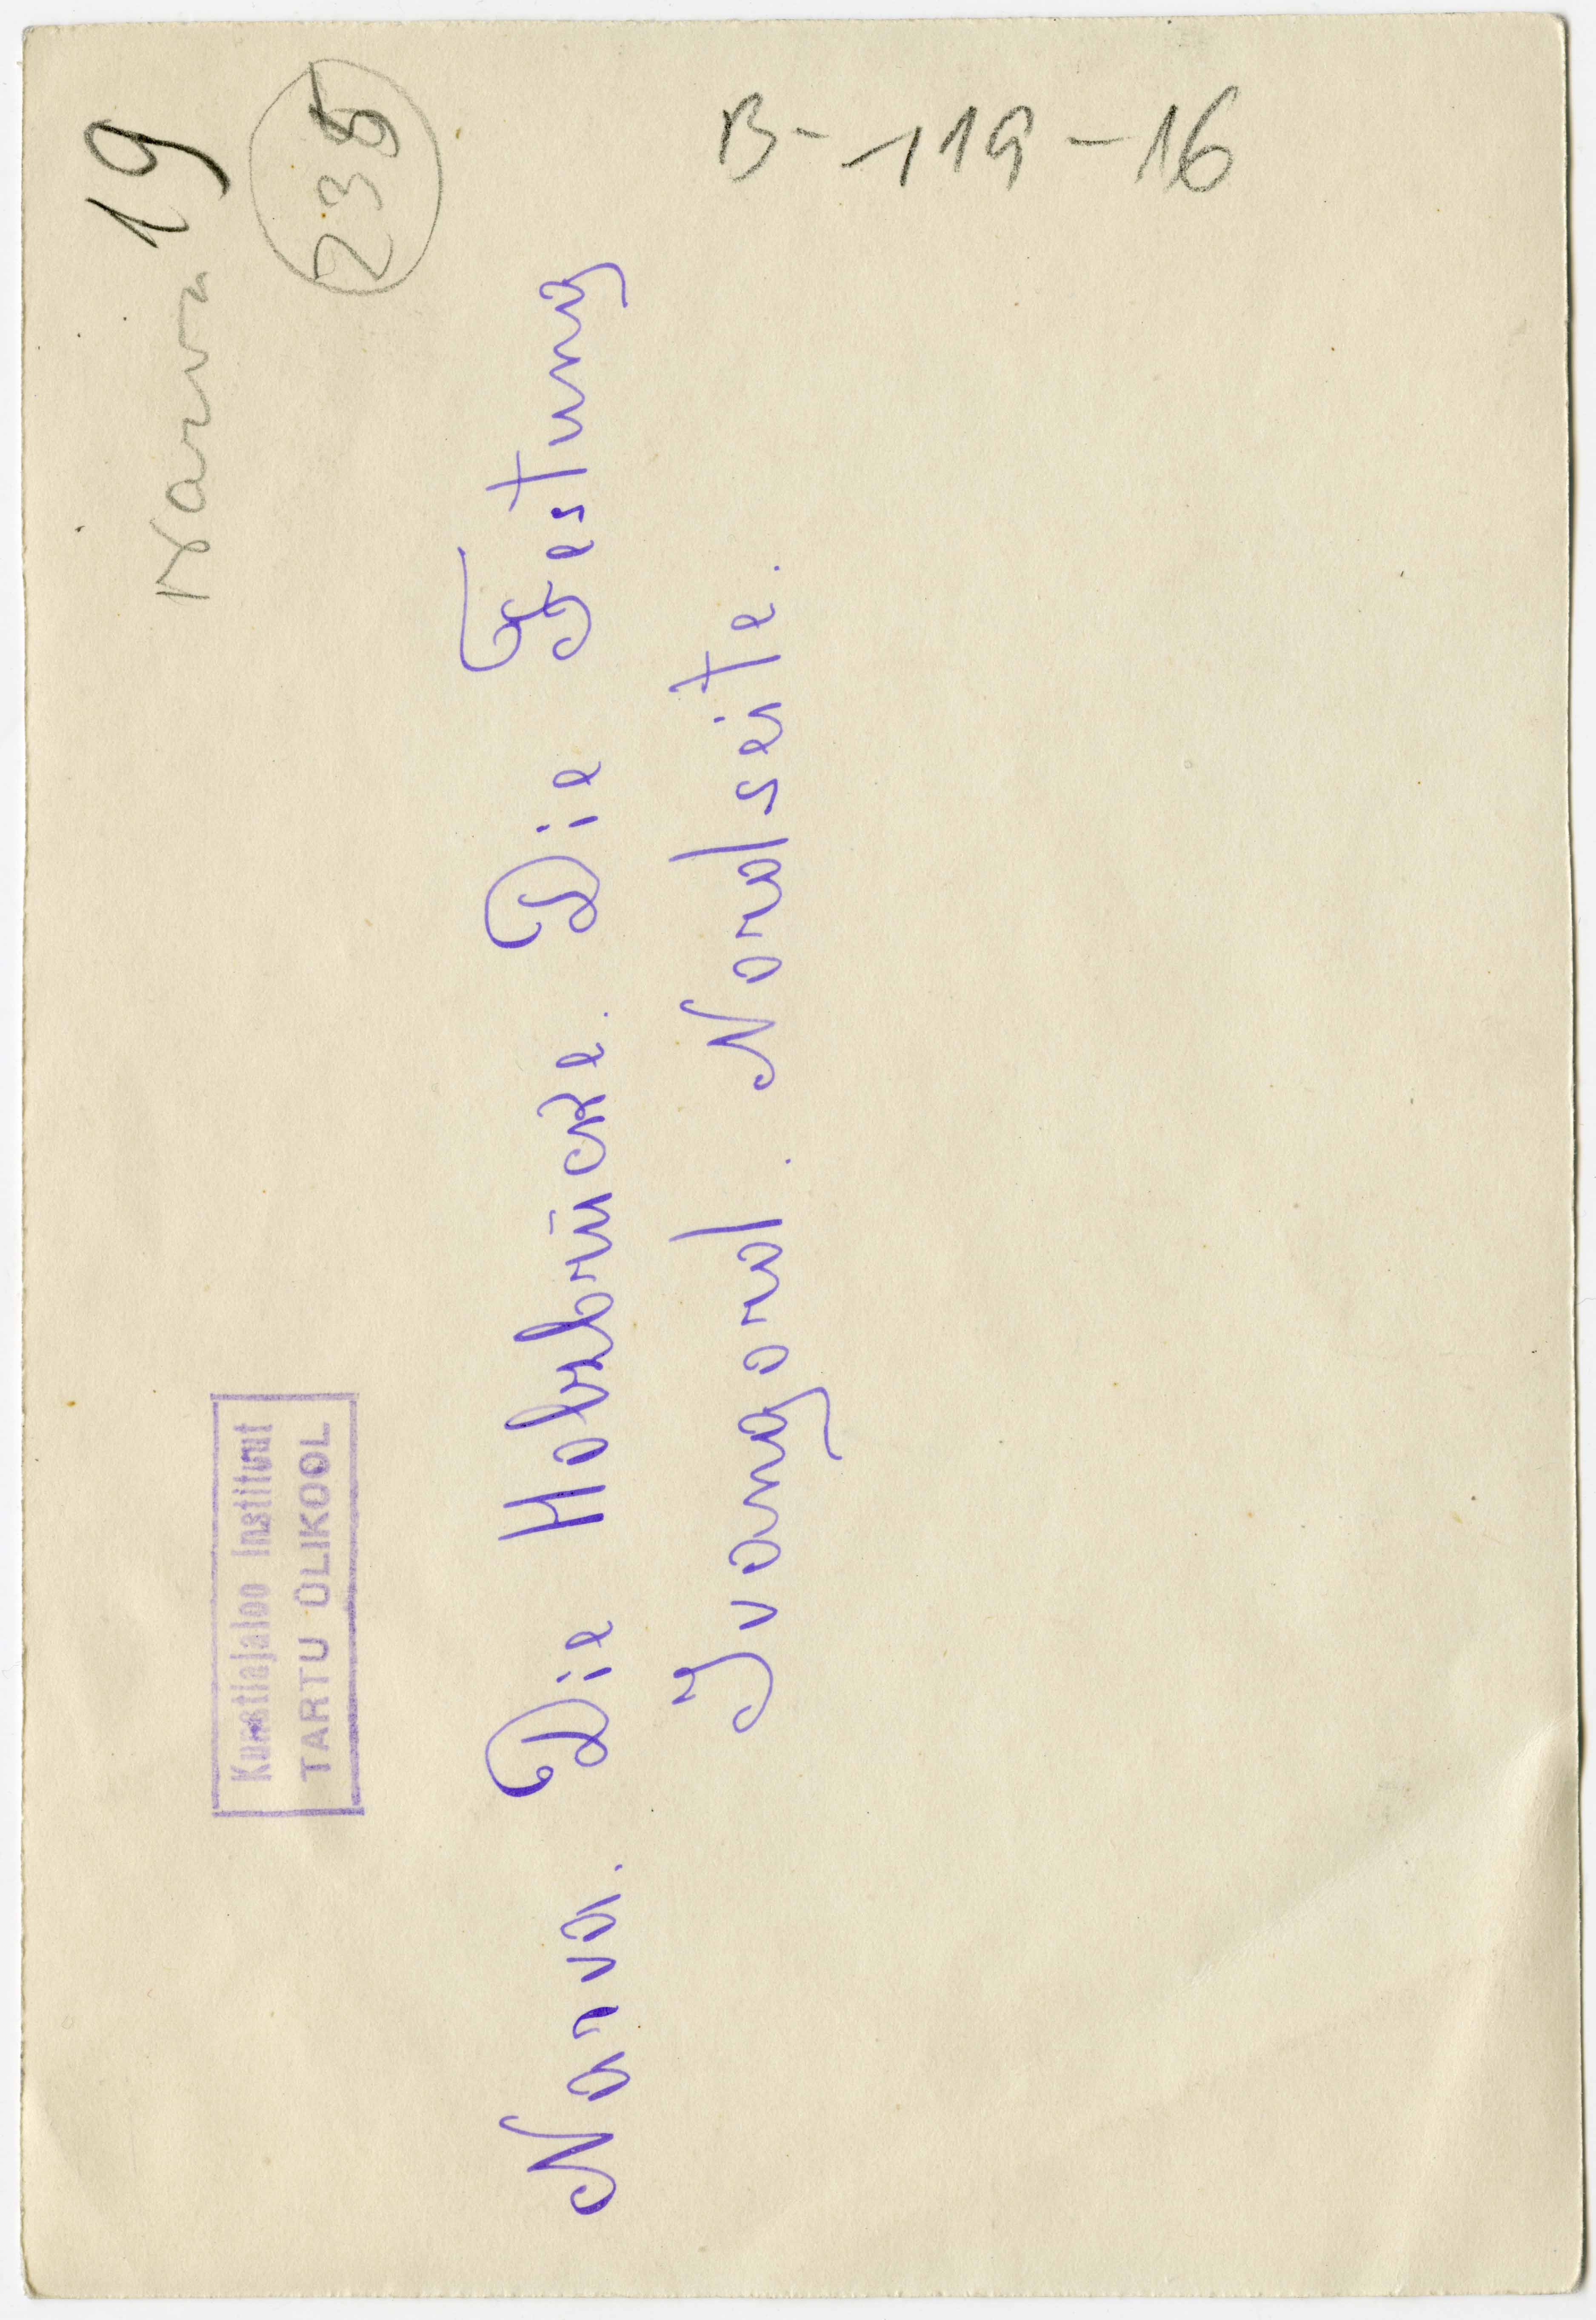 Narva 19
235
B-119-16
Kunstiajaloo Instituut
TARTU ÜLIKOOL
Narva. Die Holzbrücke. Die Festung
Ivangorod. Nordseite.